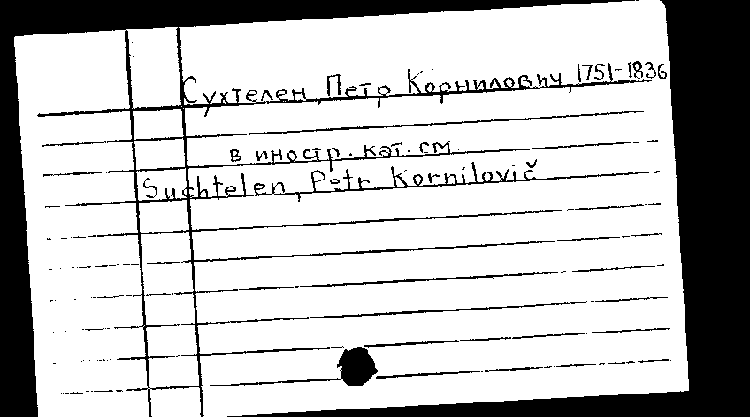 Сухтелен, Петр Корнилович, 1751-1836
в иностр. кат. см.
Suchtelen, Petr Kornilovič